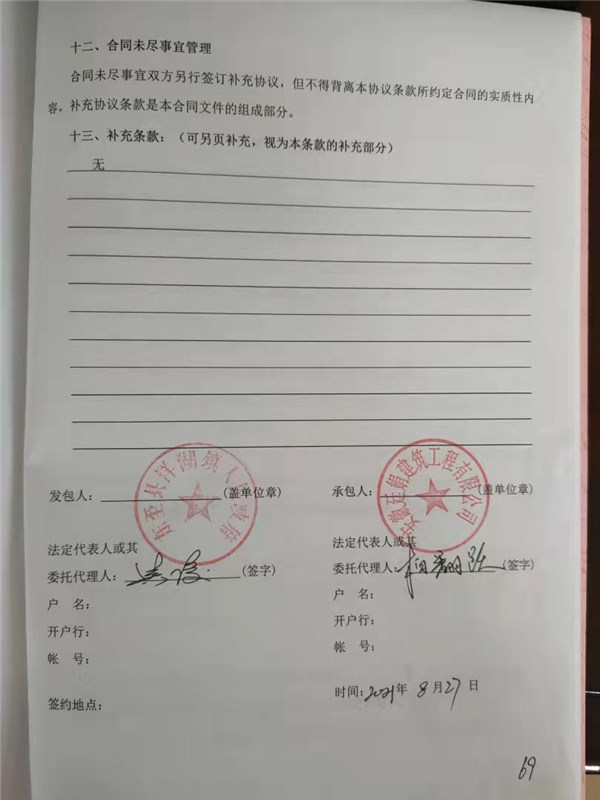 十二、合同未尽事宜管理
合同未尽事宜双方另行签订补充协议，但不得背离本协议条款所约定合同的实质性内
容。补充协议条款是本合同文件的组成部分。
十三、补充条款：（可另页补充，视为本条款的补充部分）
无
东至县洋湖镇人民政府
安徽廷娟建筑工程有限公司
发包人：(盖单位章) 承包人：(盖单位章)
法定代表人或其 法定代表人或其
委托代理人：(签字) 委托代理人：(签字)
户 名： 户 名：
开户行： 开户行：
帐 号： 帐 号：
签约地点： 时间：2021年 8月27日
69